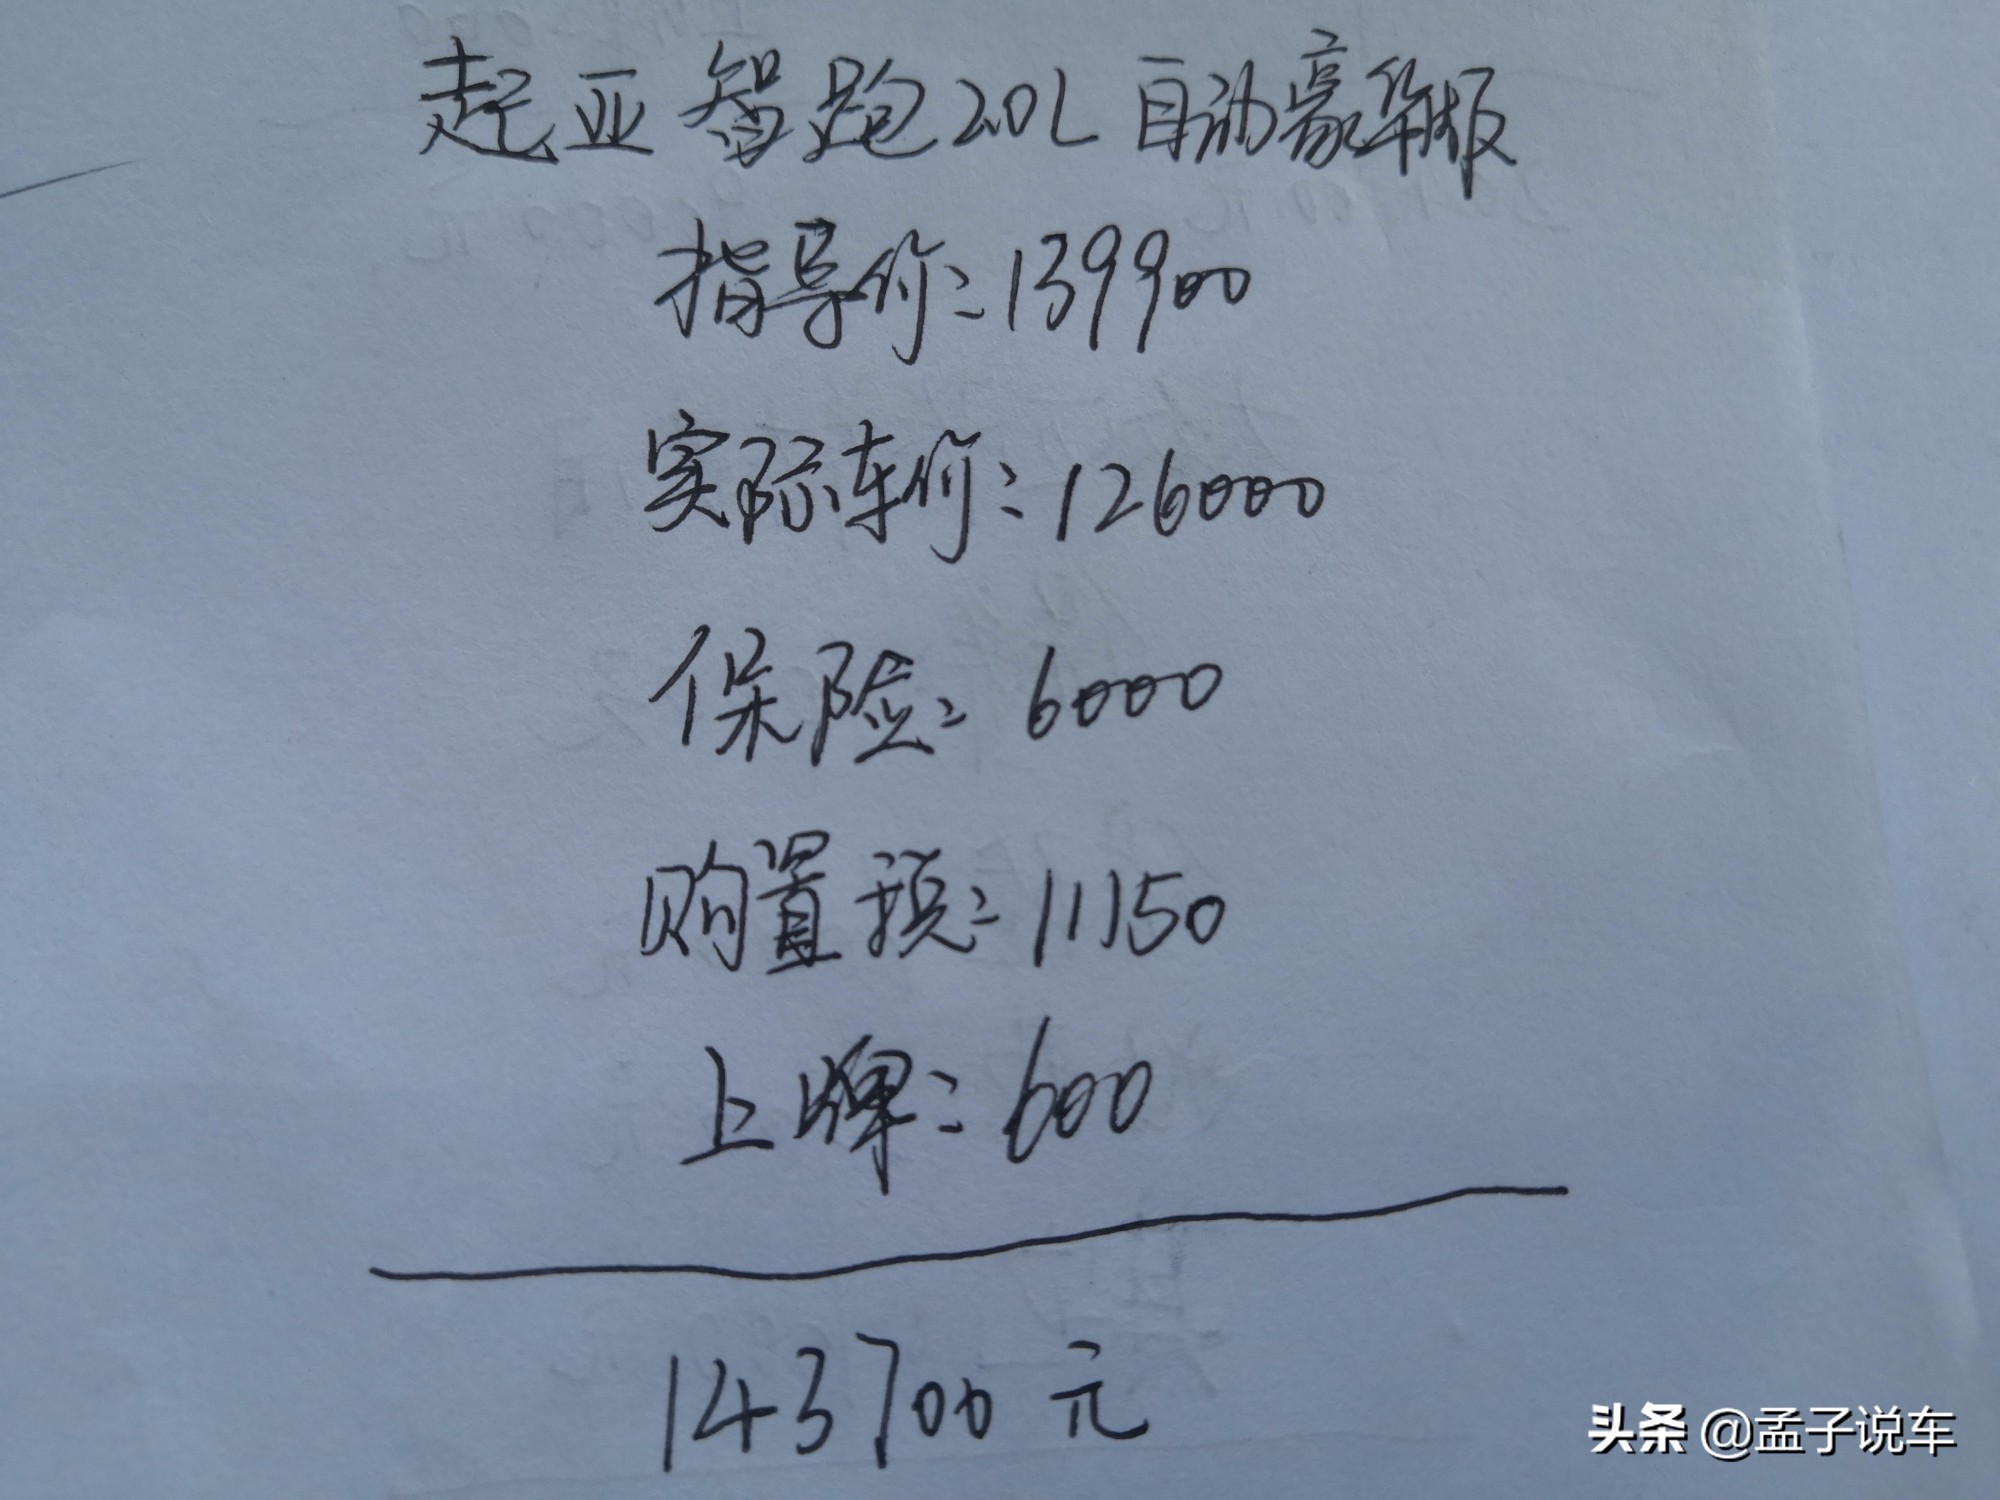 起亚智跑2.0L自动豪华版
指导价:139900
实际车价:126000
保险:6000
购置税:11150
上牌:600
143700元
头条@孟子说车